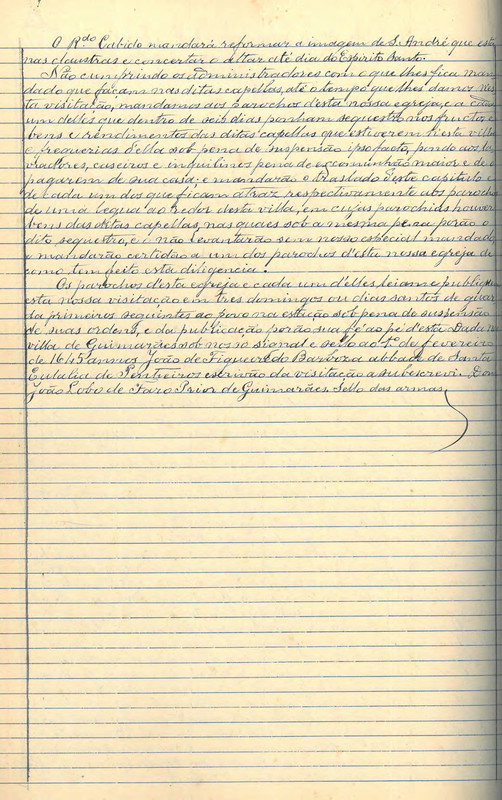 O R.do Cabido mandará reformar a imagem de S. André que está
nas claustras e concertar o altar até dia do Espirito Santo.
Não cumprindo os administradores com o que lhes fica man
dado que façam nas ditas capellas, até o tempo que lhes damos n'es
ta visitação, mandamos aos parochos d'esta nossa egreja, e a cada
um d'elles que dentro de seis dias ponham sequestro nos fructos e
bens e rendimentos das ditas capellas que estiverem n'esta villa
e freguezias d'ella sob pena de suspensão ipso facto, pondo aos la
vradores, caseiros e inquilinos pena de excomunhão maior e de o
pagarem de sua casa; e mandarão o traslado d'este capitulo e
de cada um dos que ficam atraz respectivamente aos parochos
de uma legua ao redor d'esta villa, em cujas parochias houver
bens das ditas capellas, nas quaes sob a mesma pena porão o
dito sequestro, e o não levantarão sem nosso especial mandado
e mandarão certidão a um dos parochos d'esta nossa egreja de
como tem feito esta diligencia.
Os parochos d'esta egreja e cada um d'elles, leiam e publiquem
esta nossa visitação em tres domingos ou dias santos de guar
da primeiros seguintes ao povo na estação sob pena de suspensão
de suas ordens, e da publicação porão sua fé ao pé d'esta. Dada na
villa de Guimarães sob nosso signal e sello ao 1.º de fevereiro
de 1645 annos. João de Figueiredo Barboza abbade de Santa
Eulalia de Pentieiros escrivão da visitação a subescrevi. Dom
João Lobo de Faro Prior de Guimarães. Sello das armas.